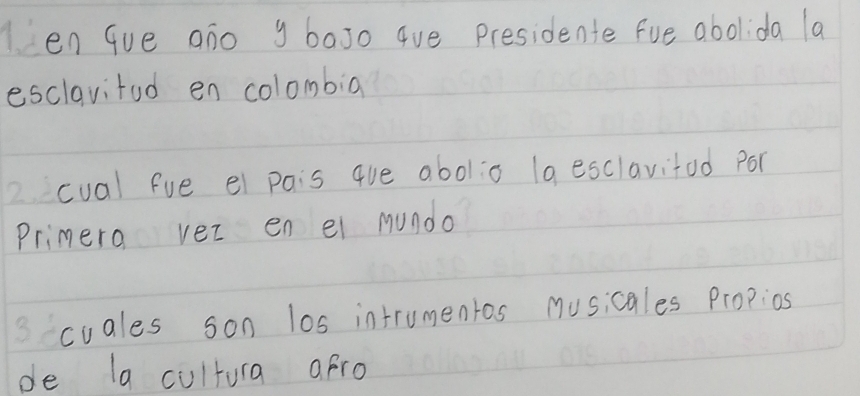 1. ¿en que año y bajo que Presidente fue abolida la
esclavitud en colombia?
2. ¿cual fue el pais que abolio la esclavitud por
Primera vez en el mundo?
3 ¿cuales son los intrumentos musicales propios
de la cultura afro